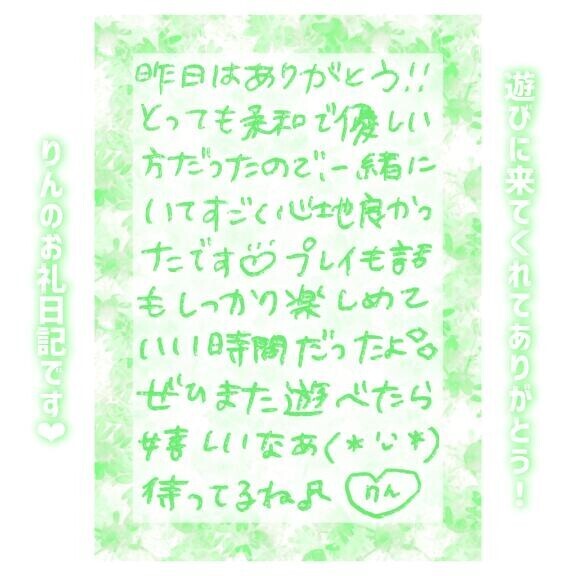 遊びに来てくれてありがとう!
昨日はありがとう!!
とっても柔和で優しい
方だったので、一緒に
いてすごく心地良かっ
たです♡プレイも話
もしっかり楽しめて
いい時間だったよ
ぜひまた遊べたら
嬉しいなぁ(*'ᴗ'*)
待ってるね♬ りん
りんのお礼日記です❤